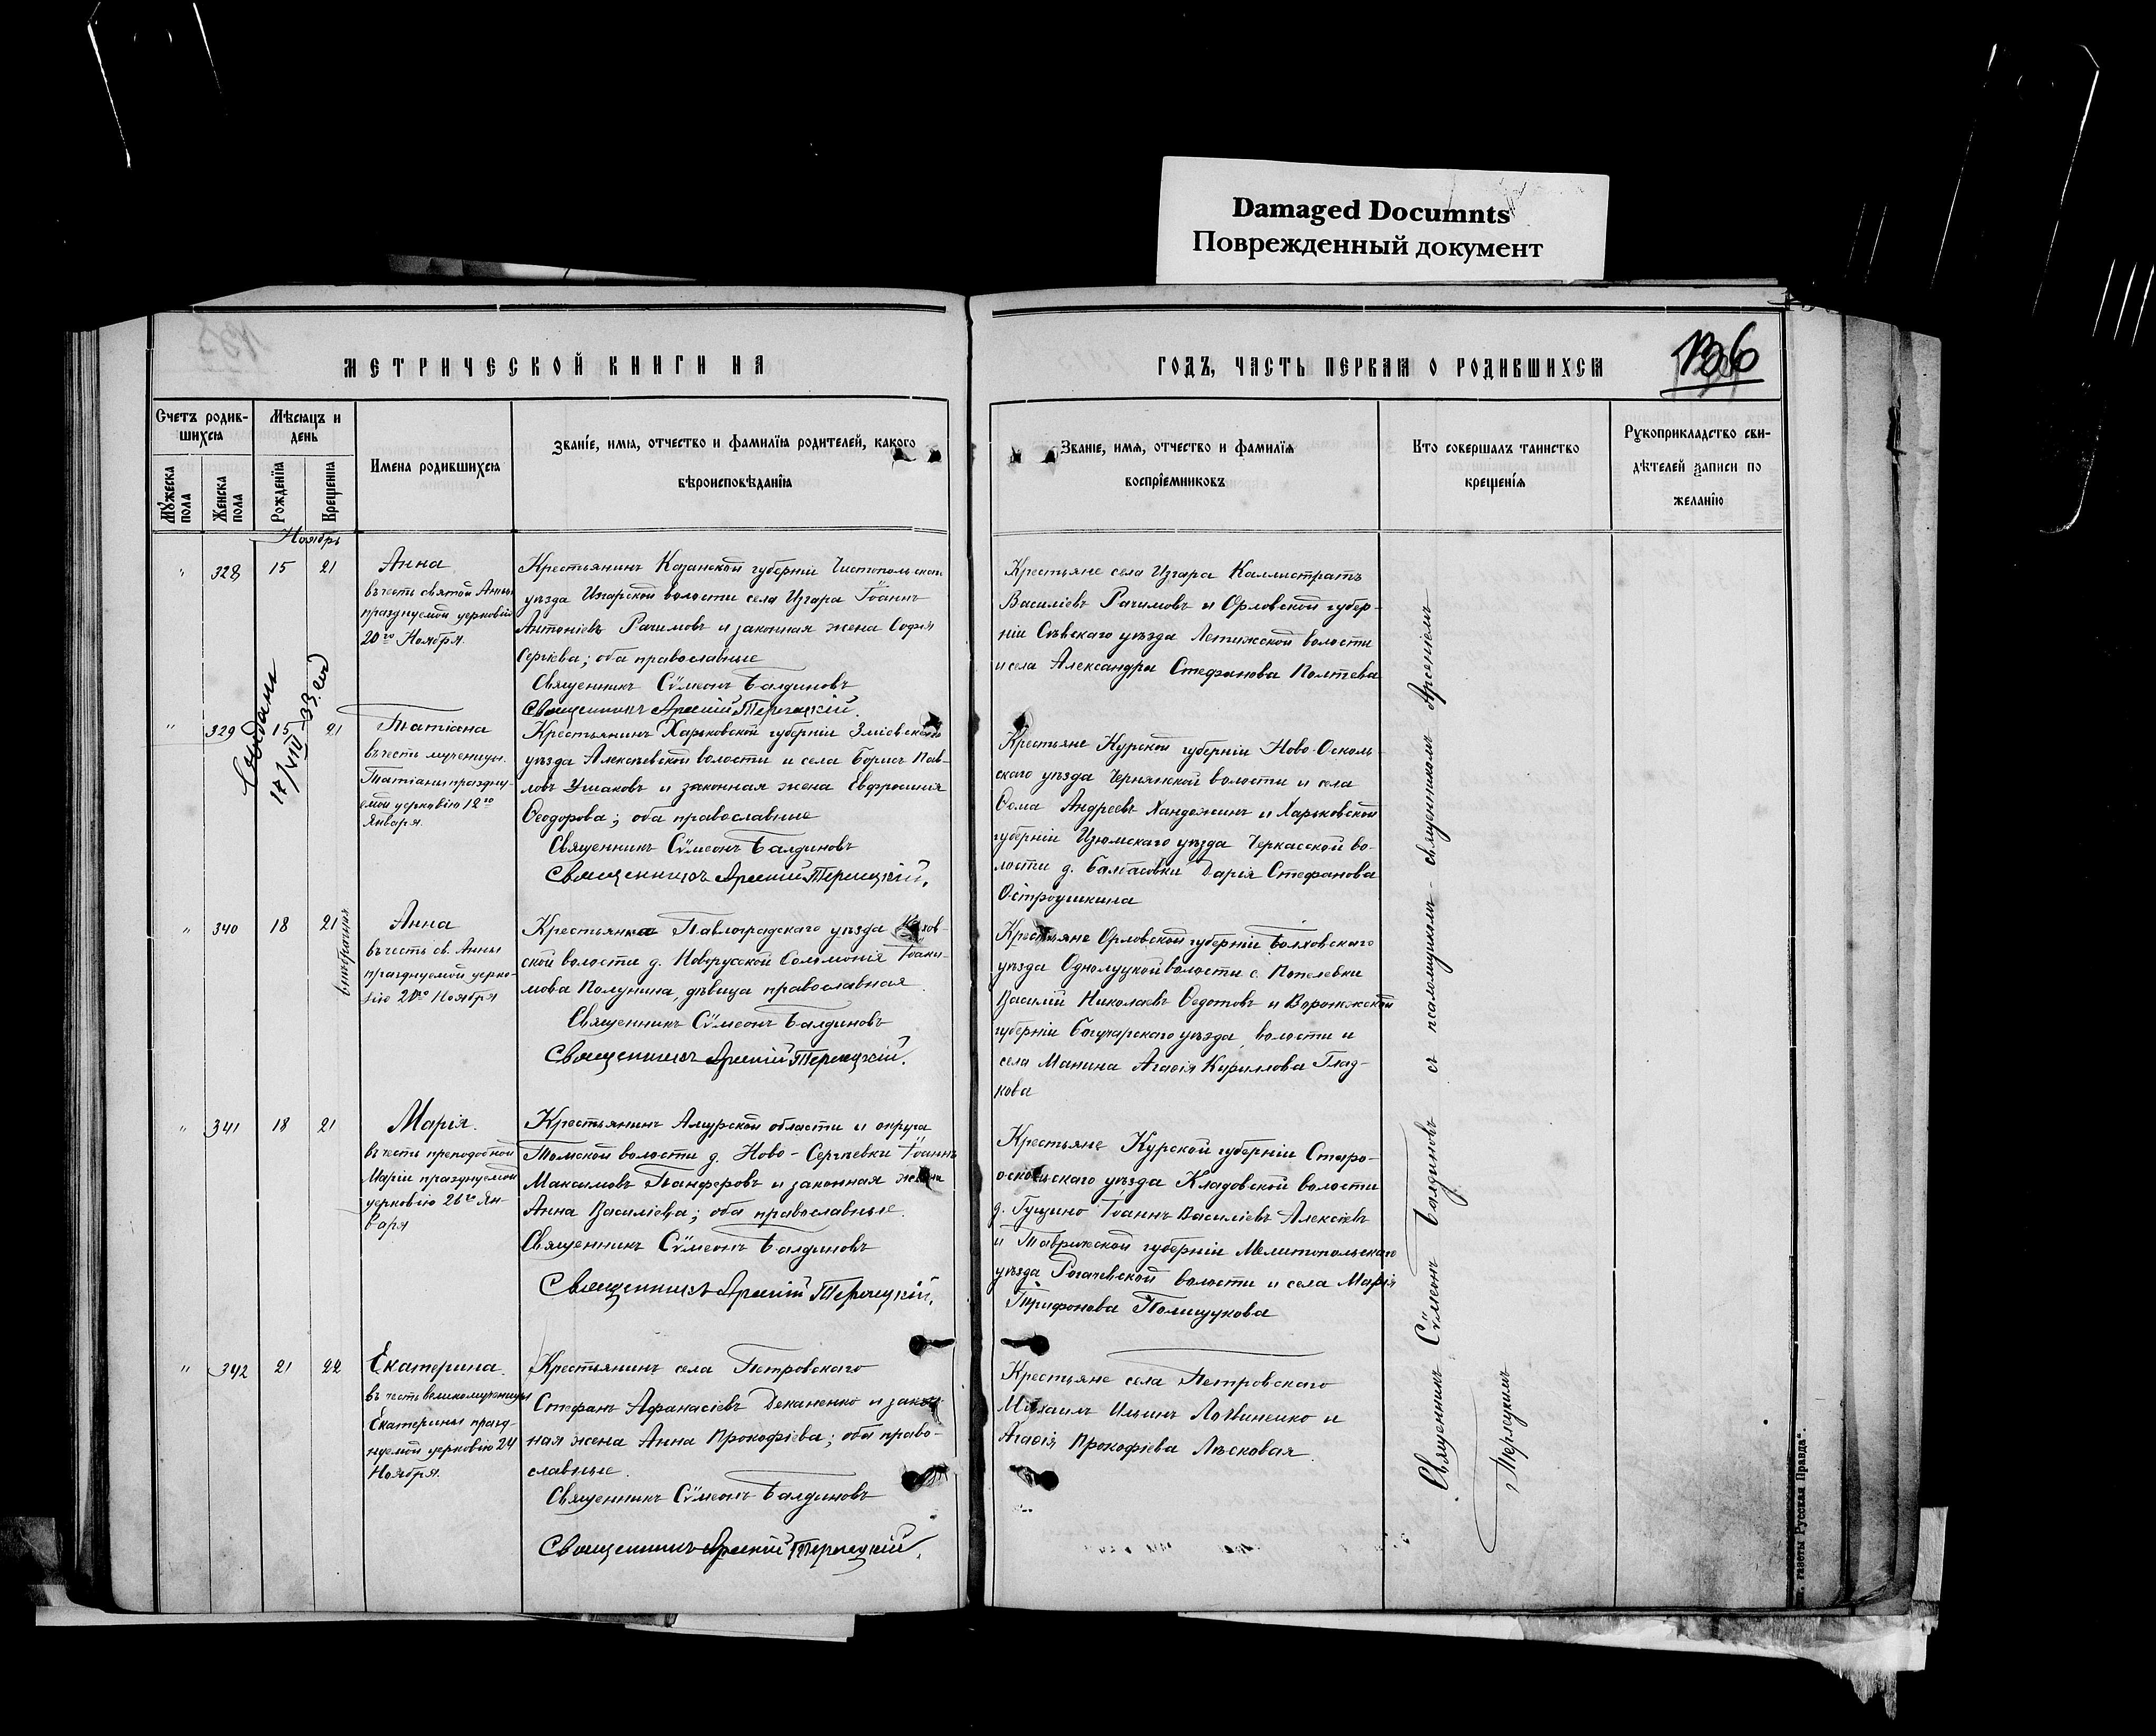 Damaged Documnts
Поврежденный документ
МЕТРИЧЕСКОЙ КНИГИ НА
ГОДЪ, ЧАСТЬ ПЕРВАЯ О РОДИВШИХСЯ
136
Счетъ родив-
шихся
Мѣсяцъ и
день
Мужеска
пола
Женска
пола
Рожденія
Крещенія
Имена родившихся
Званіе, имя, отчество и фамилія родителей, какого
вѣроисповѣданія
Званіе, имя, отчество и фамилія
воспріемниковъ
Кто совершалъ таинство
крещенія
Рукоприкладство сви-
дѣтелей записи по
желанію
Ноябрь
" 328 15 21
Анна
въ честь святой Анны
празднуемой церковію
20го Ноября.
Крестьянинъ Казанской губерніи Чистопольскаго
уѣзда Изгарской волости села Изгара Іоаннъ
Антоніевъ Рачимовъ и законная жена Софія
Сергіева; оба православные
Священникъ Сѵмеонъ Балдиновъ
Священникъ Арсеній Терлецкій.
Крестьяне села Изгара Каллистратъ
Василіевъ Рачимовъ и Орловской губер-
ніи Сѣвскаго уѣзда Лемижской волости
и села Александра Стефанова Полтева
" 329 15 21
17/VIII-33.
Татіана
въ честь мученицы
Татіаны праздну-
емой церковію 12го
Января.
Крестьянинъ Харьковской губерніи Зміевскаго
уѣзда Алексѣевской волости и села Борисъ Пав-
ловъ Ушаковъ и законная жена Евфросинія
Ѳеодорова; оба православные
Священникъ Сѵмеонъ Балдиновъ
Священникъ Арсеній Терлецкій.
Крестьяне Курской губерніи Ново-Осколь-
скаго уѣзда Чернянской волости и села
Ѳома Андреевъ Хандожинъ и Харьковской
губерніи Изюмскаго уѣзда Черкасской во-
лости д. Дарія Стефанова
Остроушкина
" 340 18 21
внѣбрачная
Анна
въ честь св. Анны
празднуемой церко-
вію 20го Ноября
Крестьянка Павлоградскаго уѣзда
ской волости д. Новорусской Соломонія Іоаки-
мова Полунина, дѣвица православная
Священникъ Сѵмеонъ Балдиновъ
Священникъ Арсеній Терлецкій.
Крестьяне Орловской губерніи Болховскаго
уѣзда Однолуцкой волости с. Попелевки
Василій Николаевъ Ѳедотовъ и Воронежской
губерніи Богучарскаго уѣзда, волости и
села Манина Агаѳія Кириллова Глад-
кова
" 341 18 21
Марія.
въ честь преподобной
Маріи празднуемой
церковію 26го Ян-
варя
Крестьянинъ Амурской области и округа
Томской волости д. Ново-Сергѣевки Іоаннъ
Максимовъ Панферовъ и законная жена
Анна Василіева; оба православные.
Священникъ Сѵмеонъ Балдиновъ
Священникъ Арсеній Терлецкій.
Крестьяне Курской губерніи Старо-
оскольскаго уѣзда Кладовской волости
д. Гущино Іоаннъ Василіевъ Алексѣевъ
и Таврической губерніи Мелитопольскаго
уѣзда Рогачевской волости и села Марія
Трифонова Полищукова
" 342 21 22
Екатерина
въ честь великомученицы
Екатерины празд-
нуемой церковію 24
Ноября.
Крестьянинъ села Петровскаго
Стефанъ Афанасіевъ Деканенко и закон-
ная жена Анна Прокофіева; оба право-
славные.
Священникъ Сѵмеонъ Балдиновъ
Священникъ Арсеній Терлецкій.
Крестьяне села Петровскаго
Михаилъ Ильинъ Логвиненко и
Агаѳія Прокофіева Лѣсковая.
Священникъ Сѵмеонъ Балдиновъ съ псаломщикомъ-священникомъ Арсеніемъ
Терлецкимъ
газеты Русская Правда".